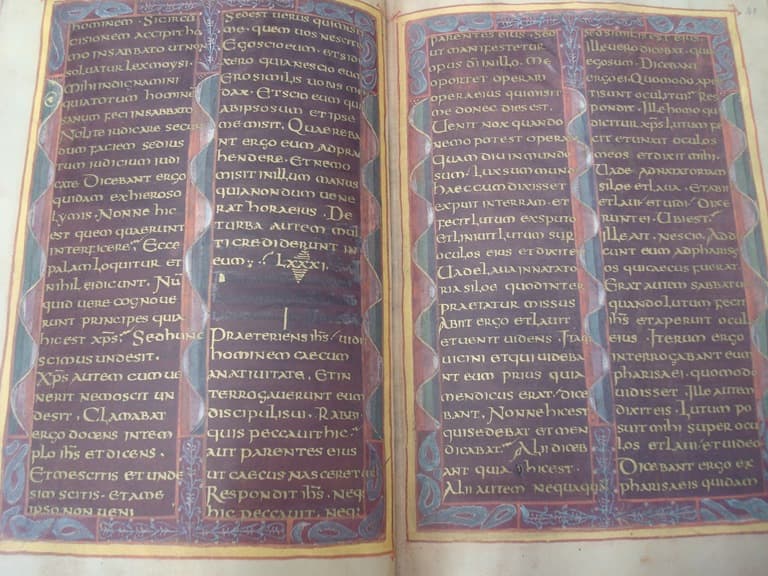 hominem · Si circu
cisionem accipit ho
mo in sabbato ut non
soluatur lex moysi ·
Mihi indignamini
quia totum homine
sanum feci in sabbato
Nolite iudicare secun
dum faciem sed ius
tum iudicium iudi
cate · Dicebant ergo
quidam ex hieroso
lymis · Nonne hic
est quem quaerunt
interficere; Ecce
palam loquitur et
nihil ei dicunt · Nū
quid uere cognoue
runt principes quia
hic est xp̄s; Sed hunc
scimus unde sit ·
Xp̄s autem cum ue
nerit nemo scit un
de sit · Clamabat
ergo docens in tem
plo ih̄s et dicens ·
Et me scitis et unde
sim scitis · et a me
ipso non ueni
Sed est uerus qui misit
me · quem uos nescitis
Ego scio eum · et si di
xero quia nescio eum
ero similis uobis men
dax · Et scio eum quia
ab ipso sum et ipse
me misit · Quaereba
nt ergo eum adpræ
hendere · Et nemo
misit in illum manus
quia nondum uene
rat hora eius · De
turba autem mul
ti crediderunt in
eum · LXXXI ·
Praeteriens ih̄s uidit
hominem caecum
a natiuitate · Et in
terrogauerunt eum
discipuli sui · Rabbi
quis peccauit hic
aut parentes eius
ut caecus nasceretur
Respondit ih̄s · neque
hic peccauit · neque
parentes eius · sed
ut manifestetur
opus di in illo · Me
oportet operari
opera eius qui misit
me donec dies est ·
Uenit nox quando
nemo potest operari
quam diu in mundo
sum / lux sum mundi
haec cum dixisset
expuit in terram · et
fecit lutum ex sputo
et liniuit lutum super
oculos eius et dixit ei
Uade laua in natato
ria siloe quod inter
praetatur missus
Abiit ergo et lauit
et uenit uidens · Itaque
uicini et qui uideba
nt eum prius quia
mendicus erat / dice
bant · Nonne hic est
qui sedebat et men
dicabat; Alii diceb
ant quia hic est ·
Alii autem nequaquam
sed similis est eius
Ille uero dicebat · quia
ego sum · Dicebant
ergo ei · Quomodo aper
ti sunt oculi tui · Res
pondit · Ille homo qui
dicitur xp̄s lutum fe
cit et unxit oculos
meos et dixit mihi ·
Uade ad natatoriam
siloe et laua · Et abii
et laui / et uidi / Dixe
runt ei · Ubi est
Ille ait · nescio · Addu
cunt eum ad phariseos
qui caecus fuerat
Erat autem sabbatum
quando lutum fecit
ih̄s et aperuit oculos
eius · Iterum ergo
interrogabant eum
pharisaei · quomodo
uidisset · Ille autem
dixit eis · Lutum po
suit mihi super ocu
los et laui / et uideo
Dicebant ergo ex
pharisaeis quidam